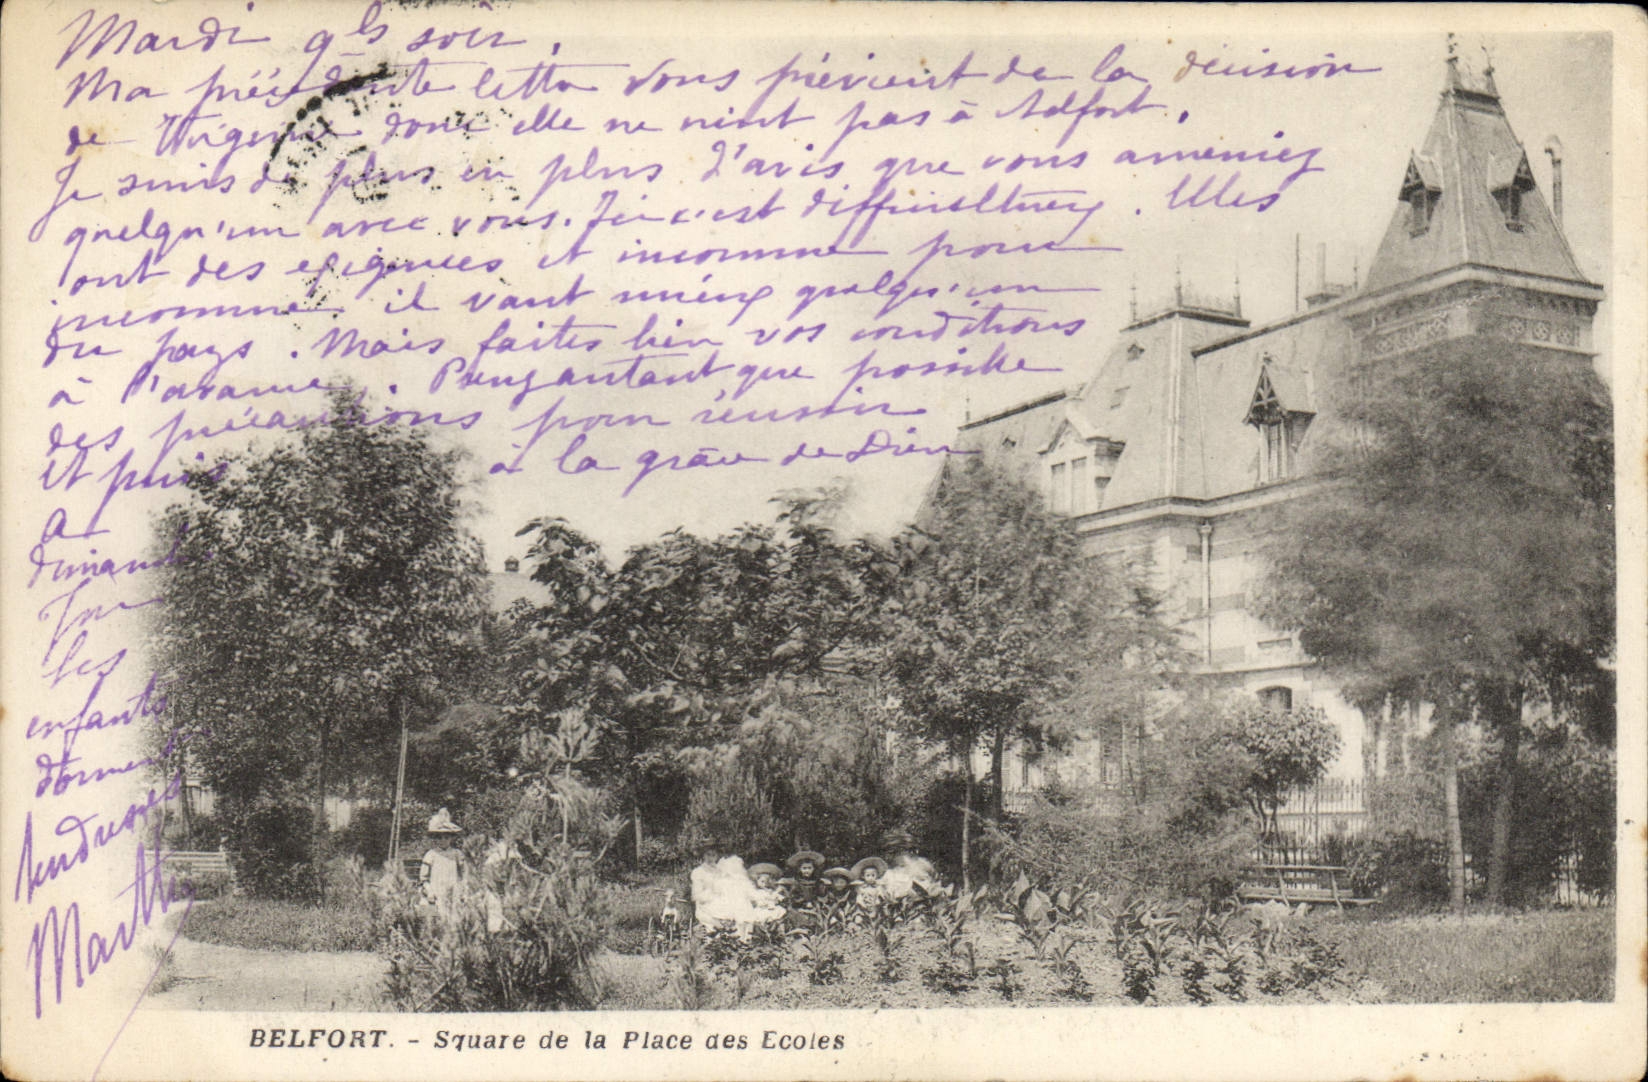 Mardi 9hs soir.
Ma précédente lettre vous prévient de la décision
de donc elle ne vient pas à Belfort.
Je suis de plus en plus d'avis que vous ameniez
quelqu'un avec vous. Ici c'est difficultueux. Elles
ont des exigences et inconnue pour
inconnue il vaut mieux quelqu'un
du pays. Mais faites bien vos conditions
à l'avance. Prenez autant que possible
des précautions pour réussir
et puis à la grâce de Dieu
A
dimanche
les
enfants
dorment
tendresses
Marthe
BELFORT. - Square de la Place des Ecoles